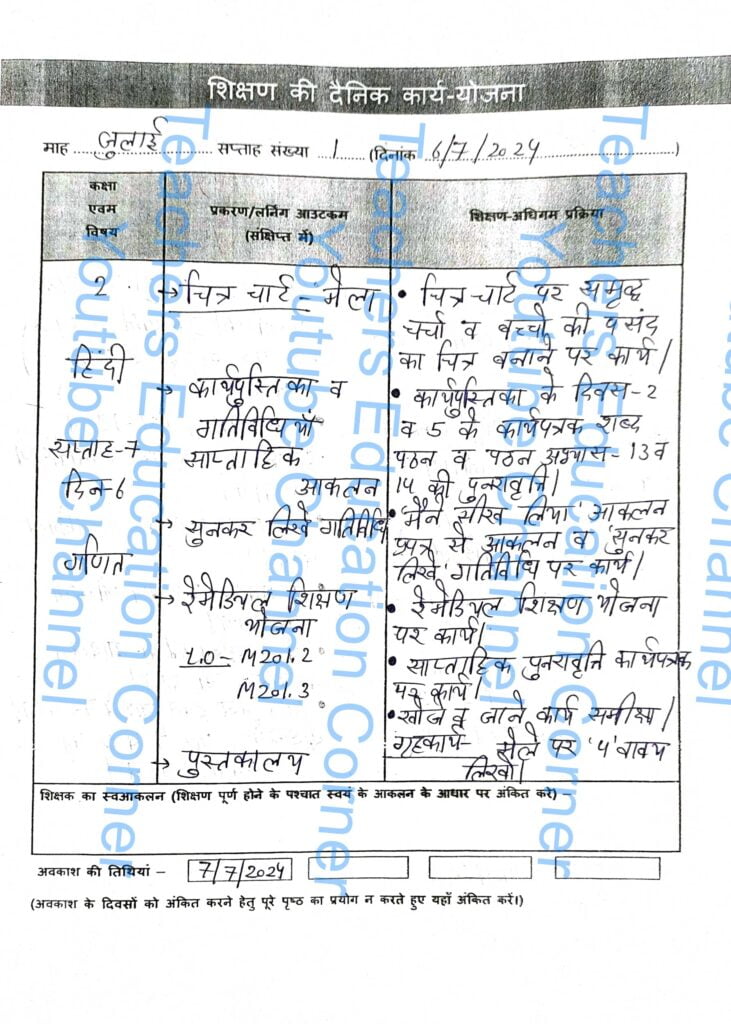 शिक्षण की दैनिक कार्य-योजना
माह जुलाई सप्ताह संख्या 1 (दिनांक 6/7/2024)
कक्षा
एवम
विषय
प्रकरण/लर्निंग आउटकम
(संक्षिप्त में)
शिक्षण-अधिगम प्रक्रिया
2
हिंदी
सप्ताह-7
दिन-6
गणित
→ चित्र चार्ट - मेला
→ कार्यपुस्तिका व
गतिविधियाँ
साप्ताहिक
आकलन
→ सुनकर लिखें गतिविधि
→ रेमेडियल शिक्षण
योजना
L.O - M201.2
M201.3
→ पुस्तकालय
• चित्र चार्ट पर समृद्ध
चर्चा व बच्चों की पसंद
का चित्र बनाने पर कार्य।
• कार्यपुस्तिका के दिवस-2
व 5 के कार्यपत्रक शब्द
पठन व पठन अभ्यास-13 व
14 की पुनरावृत्ति।
• 'मैंने सीख लिया' आकलन
प्रपत्र से आकलन व 'सुनकर
लिखें' गतिविधि पर कार्य।
• रेमेडियल शिक्षण योजना
पर कार्य।
• साप्ताहिक पुनरावृत्ति कार्यपत्रक
पर कार्य।
• खोज व जाने कार्य समीक्षा।
गृहकार्य- मेले पर '5' वाक्य
लिखो।
शिक्षक का स्वआकलन (शिक्षण पूर्ण होने के पश्चात स्वयं के आकलन के आधार पर अंकित करें) –
अवकाश की तिथियां – 7/7/2024
(अवकाश के दिवसों को अंकित करने हेतु पूरे पृष्ठ का प्रयोग न करते हुए यहाँ अंकित करें।)
Teachers Education Corner
Youtube Channel
Teachers Education Corner
Youtube Channel
Teachers Education Corner
Youtube Channel